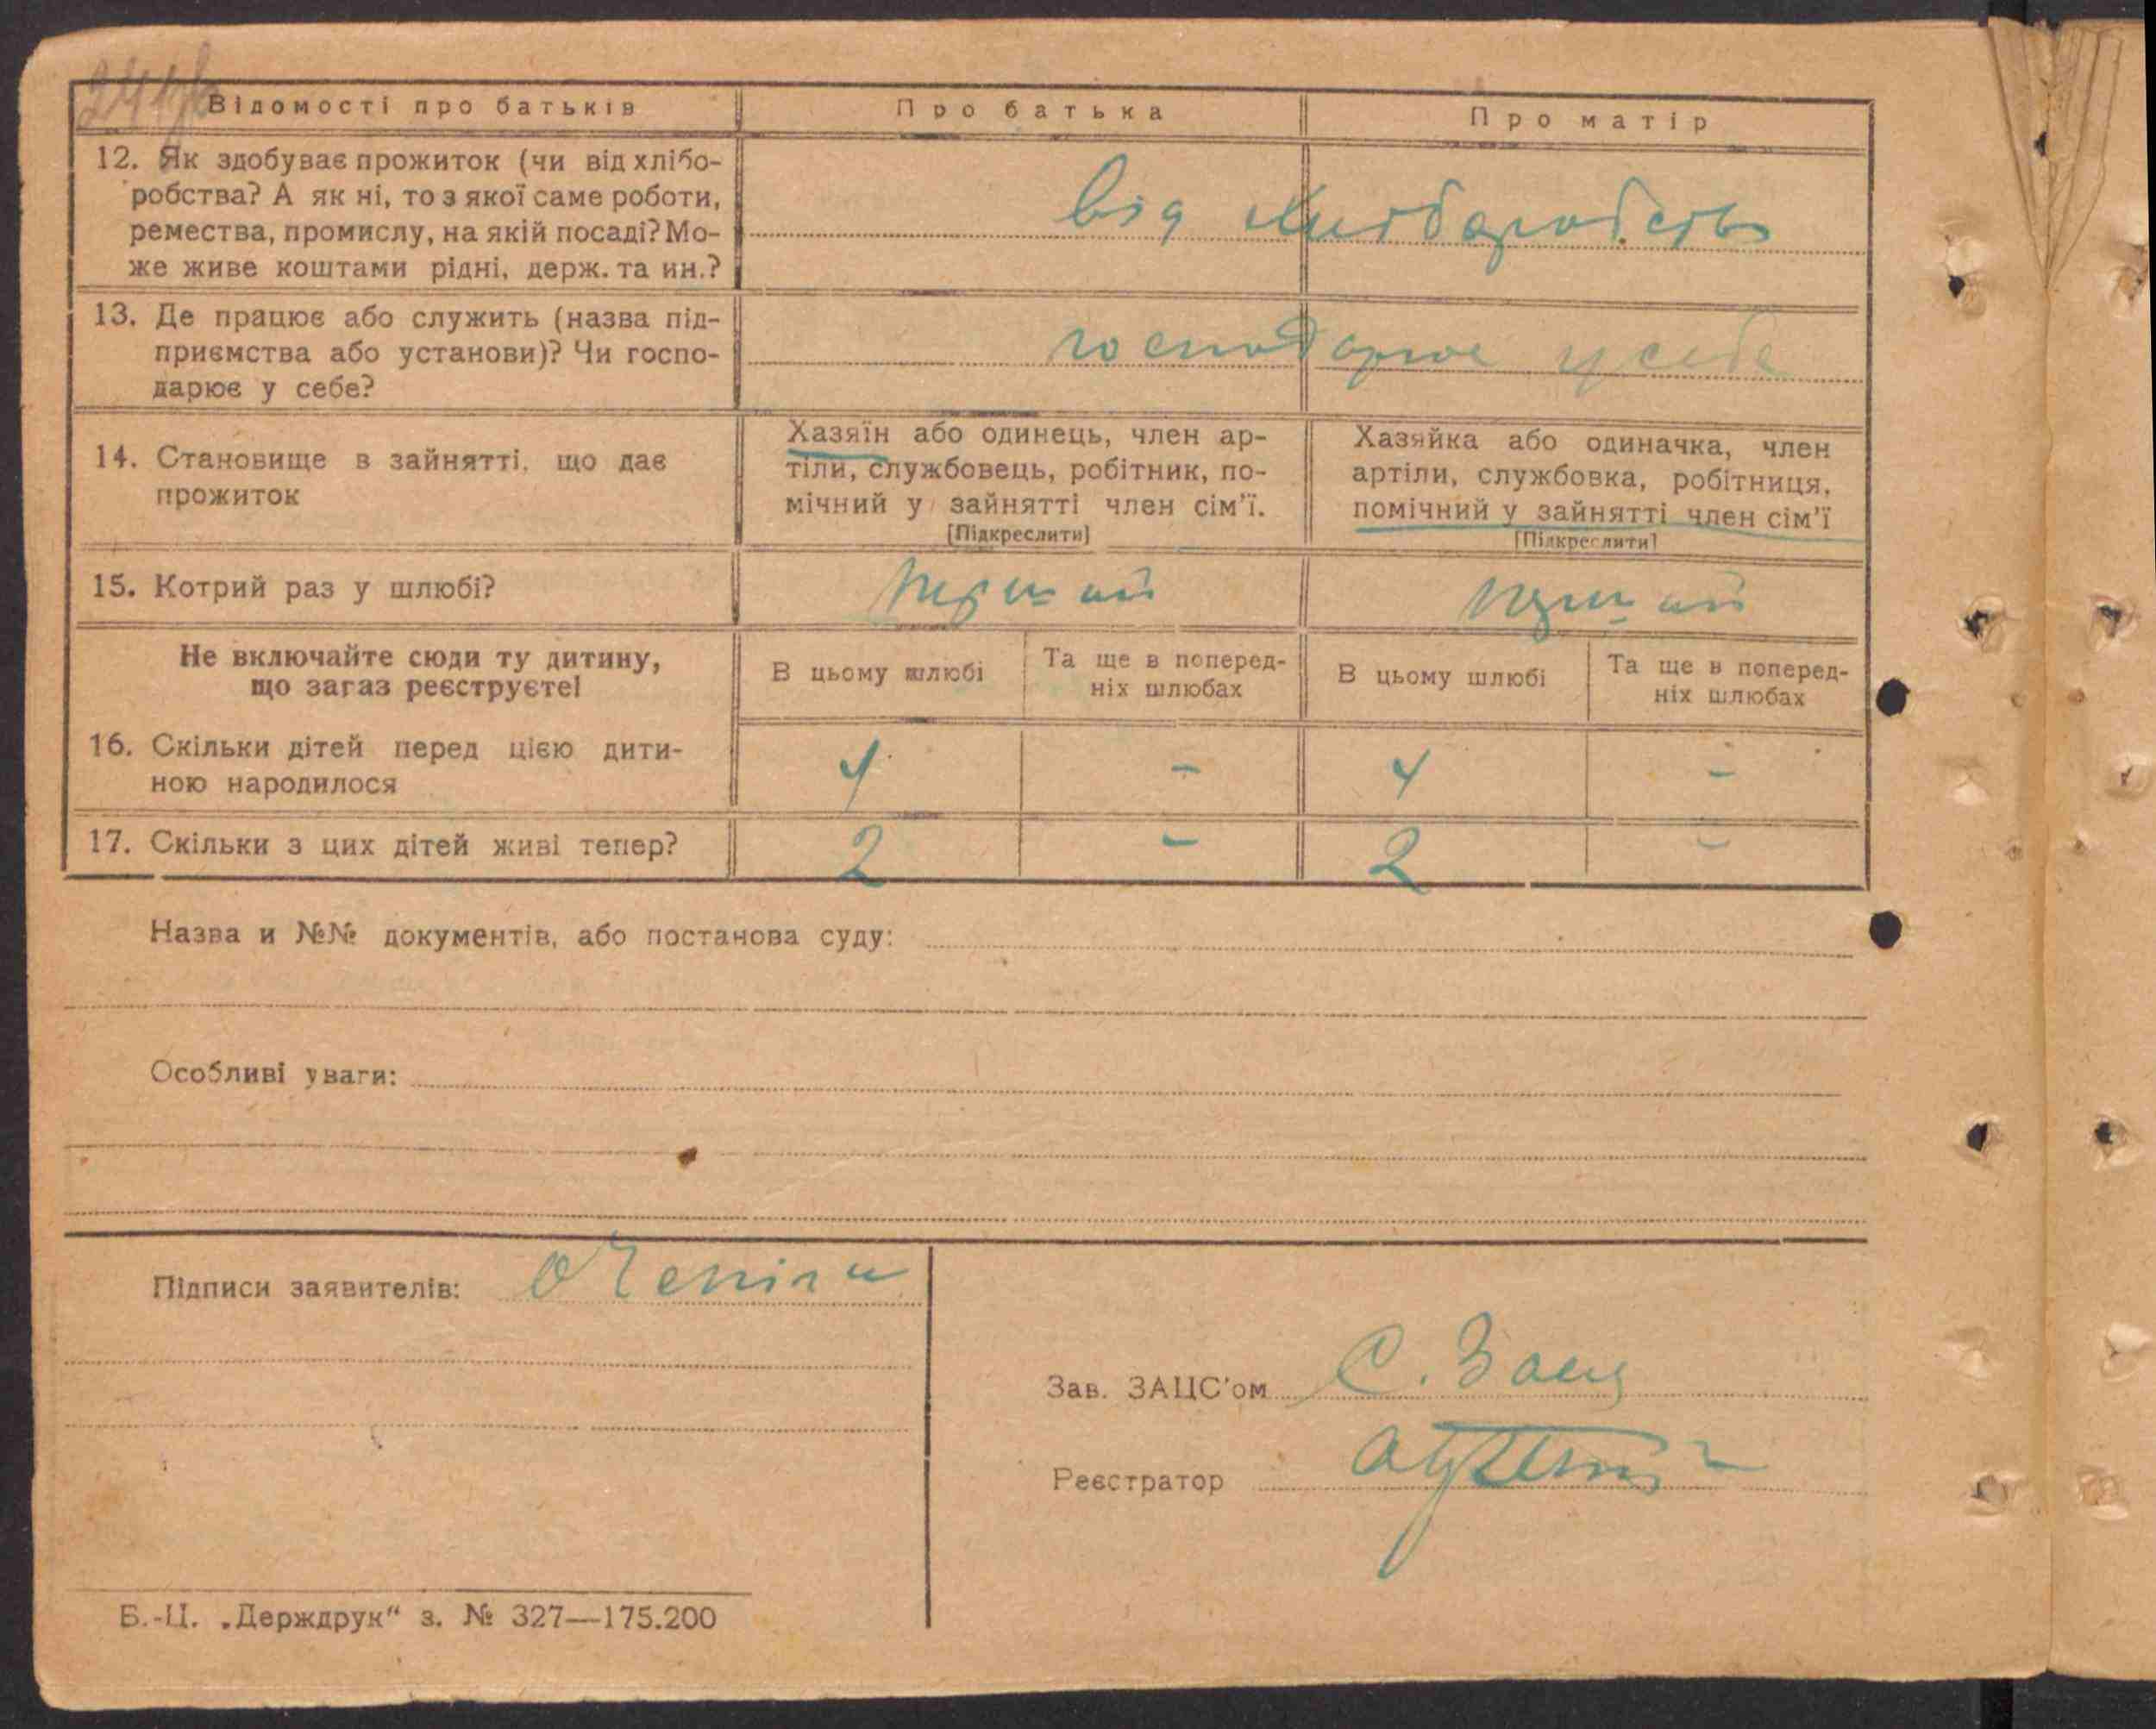 Відомості про батьків
Про батька
Про матір
12. Як здобуває прожиток (чи від хлібо-
робства? А як ні, то з якої саме роботи,
ремества, промислу, на якій посаді? Мо-
же живе коштами рідні, держ. та ин.?
від хлібаробства
13. Де працює або служить (назва під-
приємства або установи)? Чи госпо-
дарює у себе?
господарює у себе
14. Становище в зайнятті, що дає
прожиток
Хазяїн або одинець, член ар-
тіли, службовець, робітник, по-
мічний у зайнятті член сім'ї.
[Підкреслити]
Хазяйка або одиначка, член
артіли, службовка, робітниця,
помічний у зайнятті член сім'ї
[Підкреслити]
15. Котрий раз у шлюбі?
перший
перший
Не включайте сюди ту дитину,
що зараз реєструєте!
В цьому шлюбі
Та ще в поперед-
ніх шлюбах
В цьому шлюбі
Та ще в поперед-
ніх шлюбах
16. Скільки дітей перед цією дити-
ною народилося
4 - 4 -
17. Скільки з цих дітей живі тепер?
2 - 2 -
Назва и №№ документів, або постанова суду:
Особливі уваги:
Підписи заявителів:
Зав. ЗАЦС'ом С. Заєц
Реєстратор
Б.-Ц. „Держдрук“ з. № 327—175.200